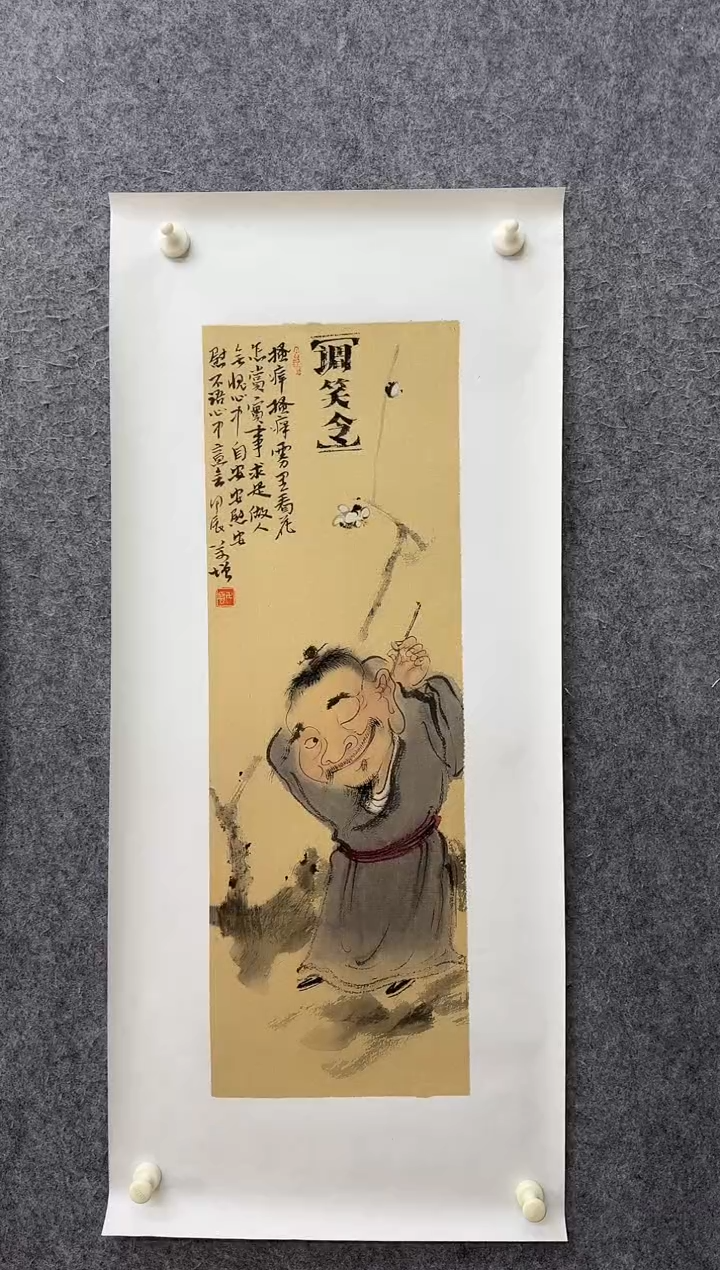 【调笑令】
搔痒搔痒雾里看花
怎赏实事求是做人
无愧心才自安安慰安
慰不语心中意会 甲辰